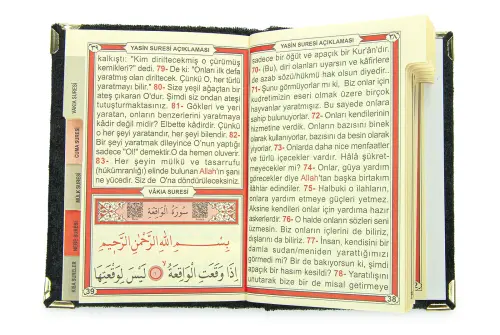 YASİN SURESİ AÇIKLAMASI
sadece bir öğüt ve apaçık bir Kur'ân'dır.
70- (Bu), diri olanları uyarsın ve kâfirlere
de azab sözü/hükmü hak olsun diyedir.
71- Şunu görmüyorlar mı ki, Biz onlar için
kudretimizin eseri olmak üzere birçok
hayvanlar yaratmışız. Bu sayede onlara
sahip bulunuyorlar. 72- Onları kendilerinin
hizmetine verdik. Onların bazısını binek
olarak kullanıyorlar, bazısını da besin olarak
yiyorlar. 73- Onlarda daha nice menfaatler
ve türlü içecekler vardır. Hâlâ şükret-
meyecekler mi? 74- Onlar, güya yardım
görecekler diye Allah'tan başka birtakım
ilâhlar edindiler. 75- Halbuki o ilahların,
onlara yardım etmeye güçleri yetmez.
Aksine kendileri onlar için yardıma hazır
askerlerdir. 76- O halde onların sözleri seni
üzmesin. Biz onların içlerini de biliriz,
dışlarını da biliriz. 77- İnsan, kendisini bir
damla sudan/meniden yarattığımızı
görmez mi? Bir de bakıyorsun ki, şimdi
apaçık bir hasım kesildi? 78- Yaratılışını
unutarak bize bir de misal getirmeye
38
YASİN SURESİ AÇIKLAMASI
kalkıştı: "Kim diriltecekmiş o çürümüş
kemikleri?" dedi. 79- De ki: "Onları ilk defa
yaratmış olan diriltecek. Çünkü O, her türlü
yaratmayı bilir." 80- Size yeşil ağaçtan bir
ateş çıkaran O'dur. Şimdi siz ondan ateşi
tutuşturmaktasınız. 81- Gökleri ve yeri
yaratan, onların benzerlerini yaratmaya
kâdir değil midir? Elbette kâdirdir. Çünkü
o her şeyi yaratandır, her şeyi bilendir. 82-
Bir şeyi yaratmak dileyince O'nun yaptığı
sadece "Ol!" demektir. O da hemen oluverir.
83- Her şeyin mülkü ve tasarrufu
(hükümranlığı) elinde bulunan Allah'ın şanı
ne yücedir. Siz de O'na döndürüleceksiniz.
VÂKIA SURESİ
سُورَةُ الْوَاقِعَةِ
بِسْمِ اللهِ الرَّحْمٰنِ الرَّحِيمِ
اِذَا وَقَعَتِ الْوَاقِعَةُ ١ لَيْسَ لِوَقْعَتِهَا
39
YASİN SURESİ
CUMA SURESİ
MÜLK SURESİ
NEBE SURESİ
KISA SURELER